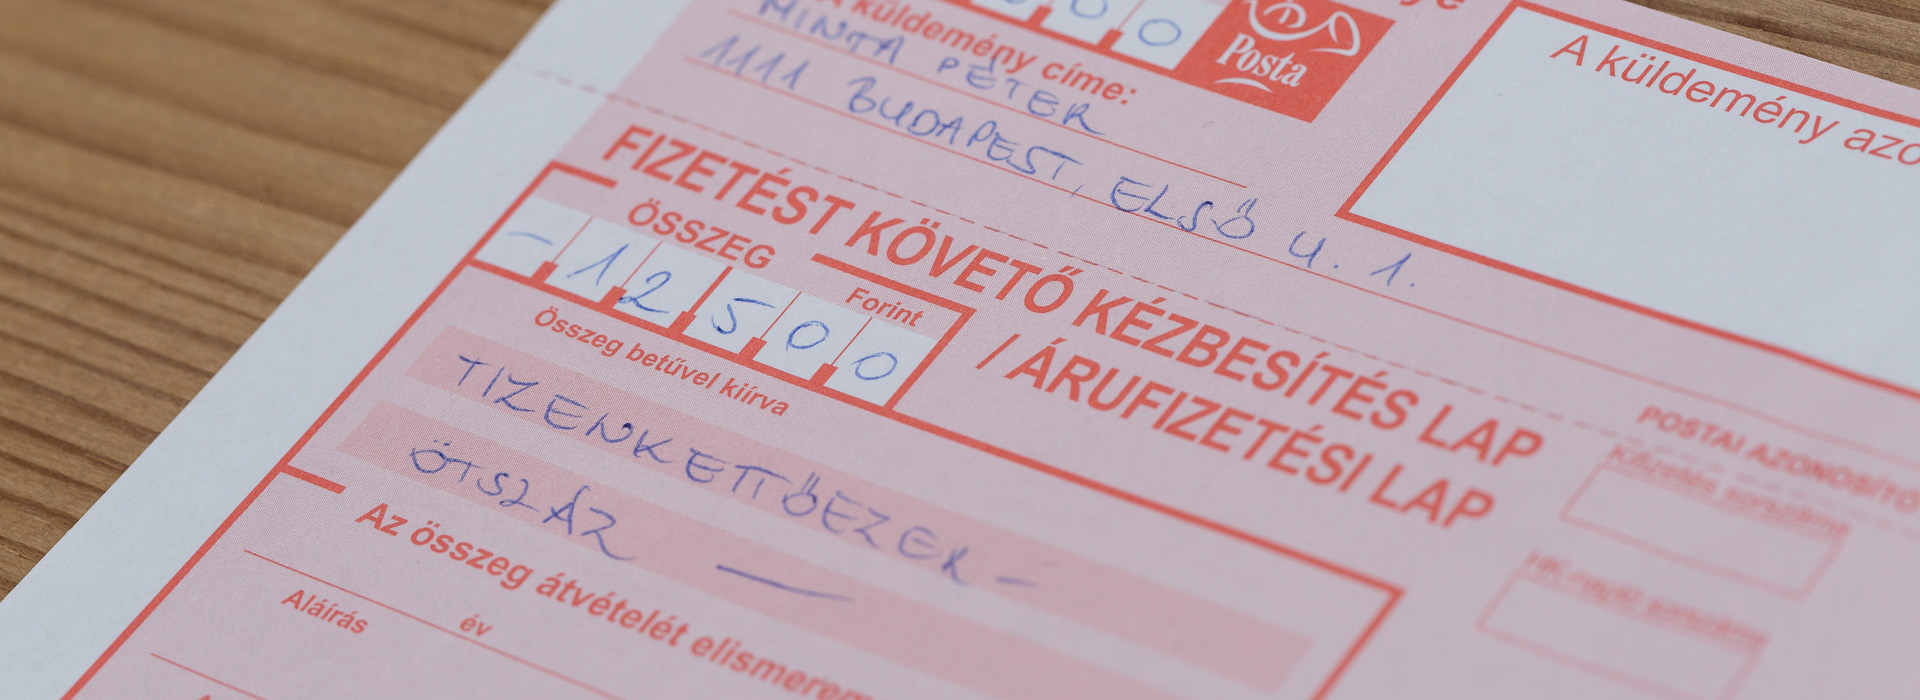 A küldemény címe:
MINTA PÉTER
1111 BUDAPEST, ELSŐ U. 1.
Posta
A küldemény azo
FIZETÉST KÖVETŐ KÉZBESÍTÉS LAP
/ ÁRUFIZETÉSI LAP
ÖSSZEG
Forint
-12500
Összeg betűvel kiírva
TIZENKETTŐEZER -
ÖTSZÁZ —
POSTAI AZONOSÍTÓ
Kifizetés sorszáma
HK-napló sorszáma
Az összeg átvételét elismerem
Aláírás
év